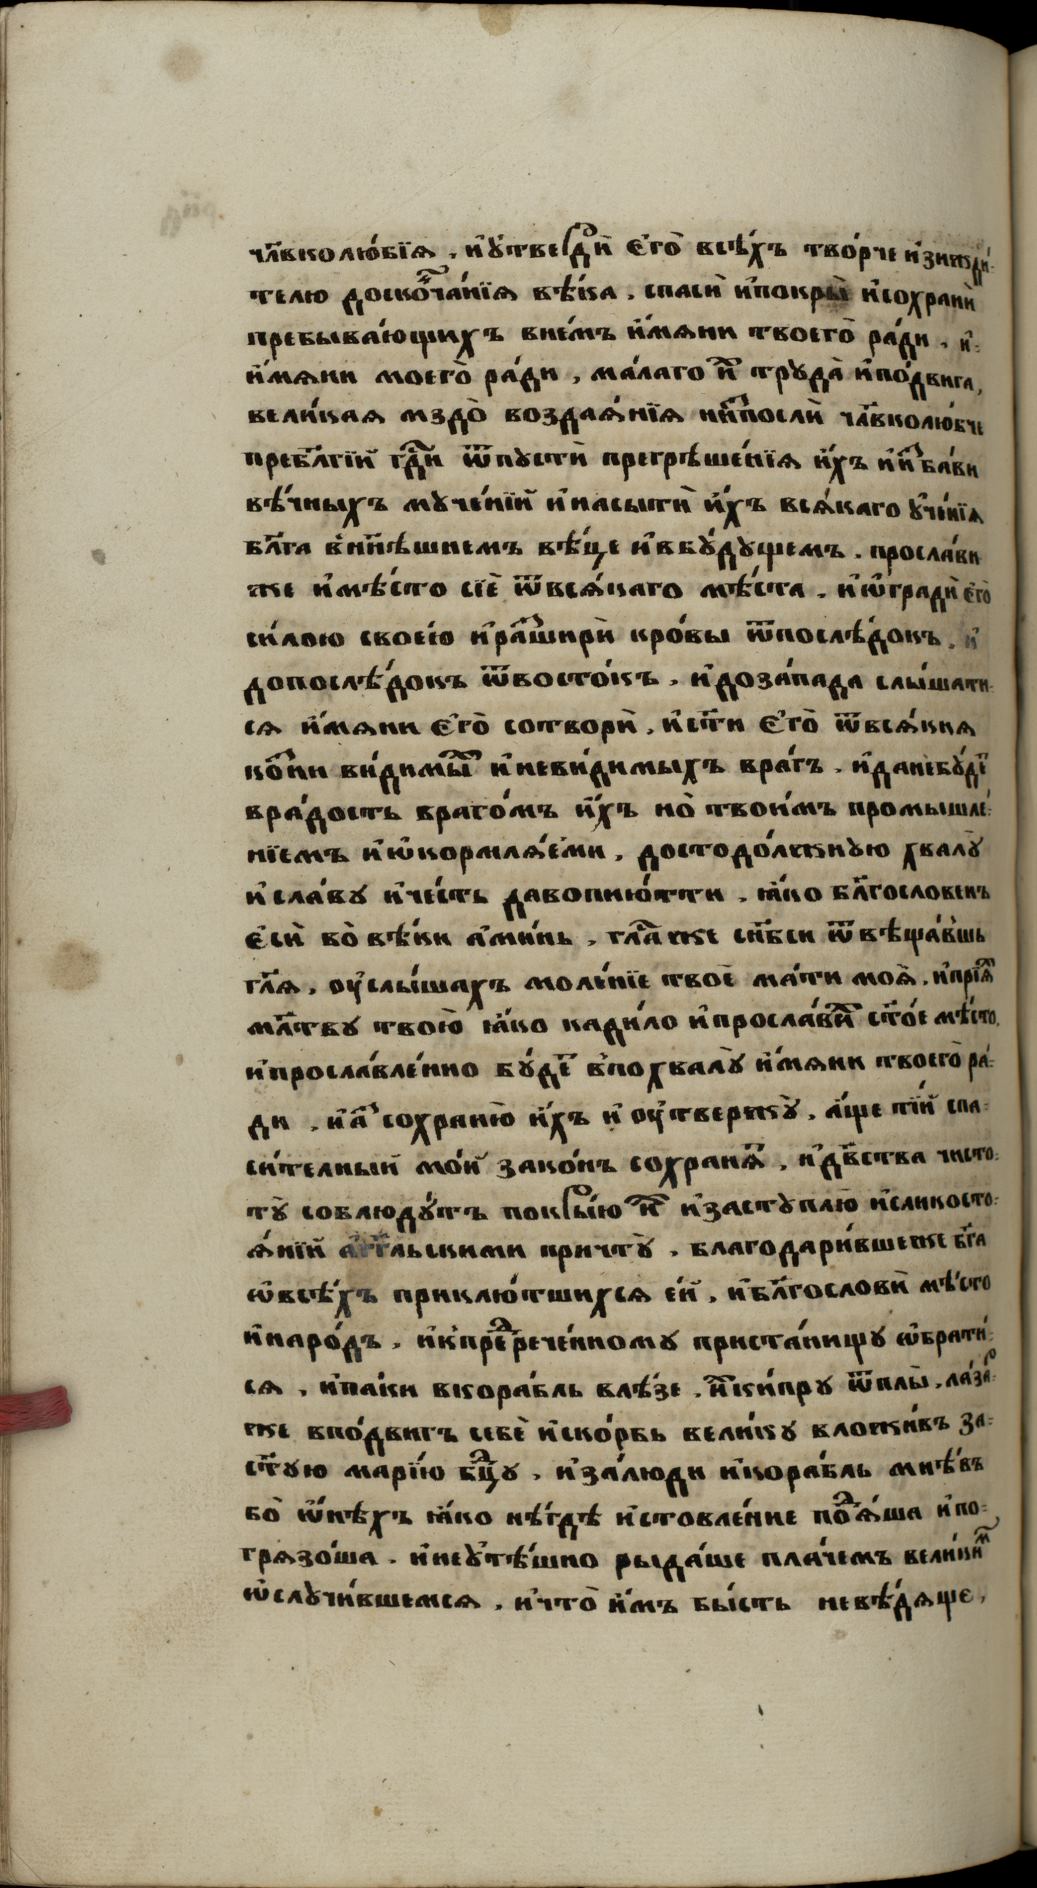 чл҃вколю́бїѧ . и҆ꙋ҆твердѝ є҆го̀ всѣ́хъ тво́рче и҆зижди́-
телю доскон̾ча́нїѧ вѣ́ка . спасѝ и҆покры̀ и҆сохранѝ
пребыва́ющихъ вне́мъ и҆́мѧни твоего̀ ра́ди . и҆-
и҆́мѧни моего̀ ра́ди , ма́лаго и҆х̾ трꙋда̀ и҆по́двига ,
вели́каѧ мздо̀ воздаѧ́нїѧ и҆м̾послѝ чл҃вколю́бче
пребл҃гїй гд҃и ѿпꙋстѝ прегрѣше́нїѧ и҆́хъ и҆и҆збави
вѣ́чныхъ мꙋче́нїй и҆насытѝ и҆́хъ всѧ́каго ꙋ҆че́нїѧ
бл҃га вн҃ѣшнемъ вѣ́це и҆вбꙋ́дꙋщемъ . просла́ви
же и҆мѣ́сто сїѐ ѿвсѧ́каго мѣ́ста . и҆ѡ҆градѝ є҆го̀
си́лою своею̀ и҆раз̾ширѝ кро́вы ѿпослѣ́докъ . и҆
допослѣ́докъ ѿвосто́къ . и҆доза́пада слы́шати-
сѧ и҆́мѧни є҆го̀ сотворѝ . и҆сп҃ти є҆го̀ ѿвсѧ́киѧ
ко́зни ви́димых̾ и҆неви́димыхъ вра́гъ . и҆данебꙋ́дет̾
вра́дость враго́мъ и҆́хъ но̀ твои́мъ промышле́-
нїемъ и҆ѡ҆кормлѧ́еми , достодо́лжнꙋю хвалꙋ̀
и҆сла́вꙋ и҆че́сть давопию́тти . ꙗ҆́ко бл҃гословенъ
є҆сѝ во̀ вѣ́ки а҆ми́нь . гла́с̾же сн҃бси ѿвѣща́вшь
гл҃ѧ . оу҆слы́шахъ моле́нїе твоѐ ма́ти моѧ̀ . и҆прїѧ́х̾
мл҃твꙋ твою̀ ꙗ҆́ко кади́ло и҆просла́вих̾ ст҃о́е мѣ́сто .
и҆прославле́нно бꙋ́дет̾ впохвалꙋ̀ и҆́мѧни твоего̀ ра́-
ди . и҆а҆́з̾ сохраню̀ и҆́хъ и҆ оу҆твержꙋ̀ . а҆́ще тїй спа-
си́телный мо́й зако́нъ сохранѧ́т̾ . и҆дв҃ства чисто-
тꙋ̀ соблюдꙋ́тъ покры́ю и҆х̾ и҆застꙋплю̀ и҆сликосто-
ѧ́нїй а҆гг҃льскими причтꙋ̀ . благодари́вшеже бг҃а
ѡ҆всѣ́хъ приклю́тшихсѧ е́й , и҆бл҃гословѝ мѣ́сто
и҆наро́дъ . и҆кпред̾рече́нномꙋ приста́нищꙋ ѡ҆брати́-
сѧ , и҆па́ки вкора́бль влѣ́зе . и҆ ки́прꙋ ѿплы̀ . ла́зарь
же впо́двигъ себѐ и҆ско́рбь вели́кꙋ вложи́въ за-
ст҃ꙋю марі́ю бц҃дꙋ , и҆за́люди и҆кора́бль мнѣ́въ
бо̀ ѡ҆́нѣхъ ꙗ҆́ко нѣ́гдѣ и҆стовле́ние под̾ѧ́ша и҆по-
грѧзо́ша . и҆неꙋ҆тѣ́шно рыда́ше пла́чемъ вели́ким̾
ѡ҆слꙋчи́вшемсѧ . и҆что̀ и҆́мъ бы́сть невѣ́дѧще ,